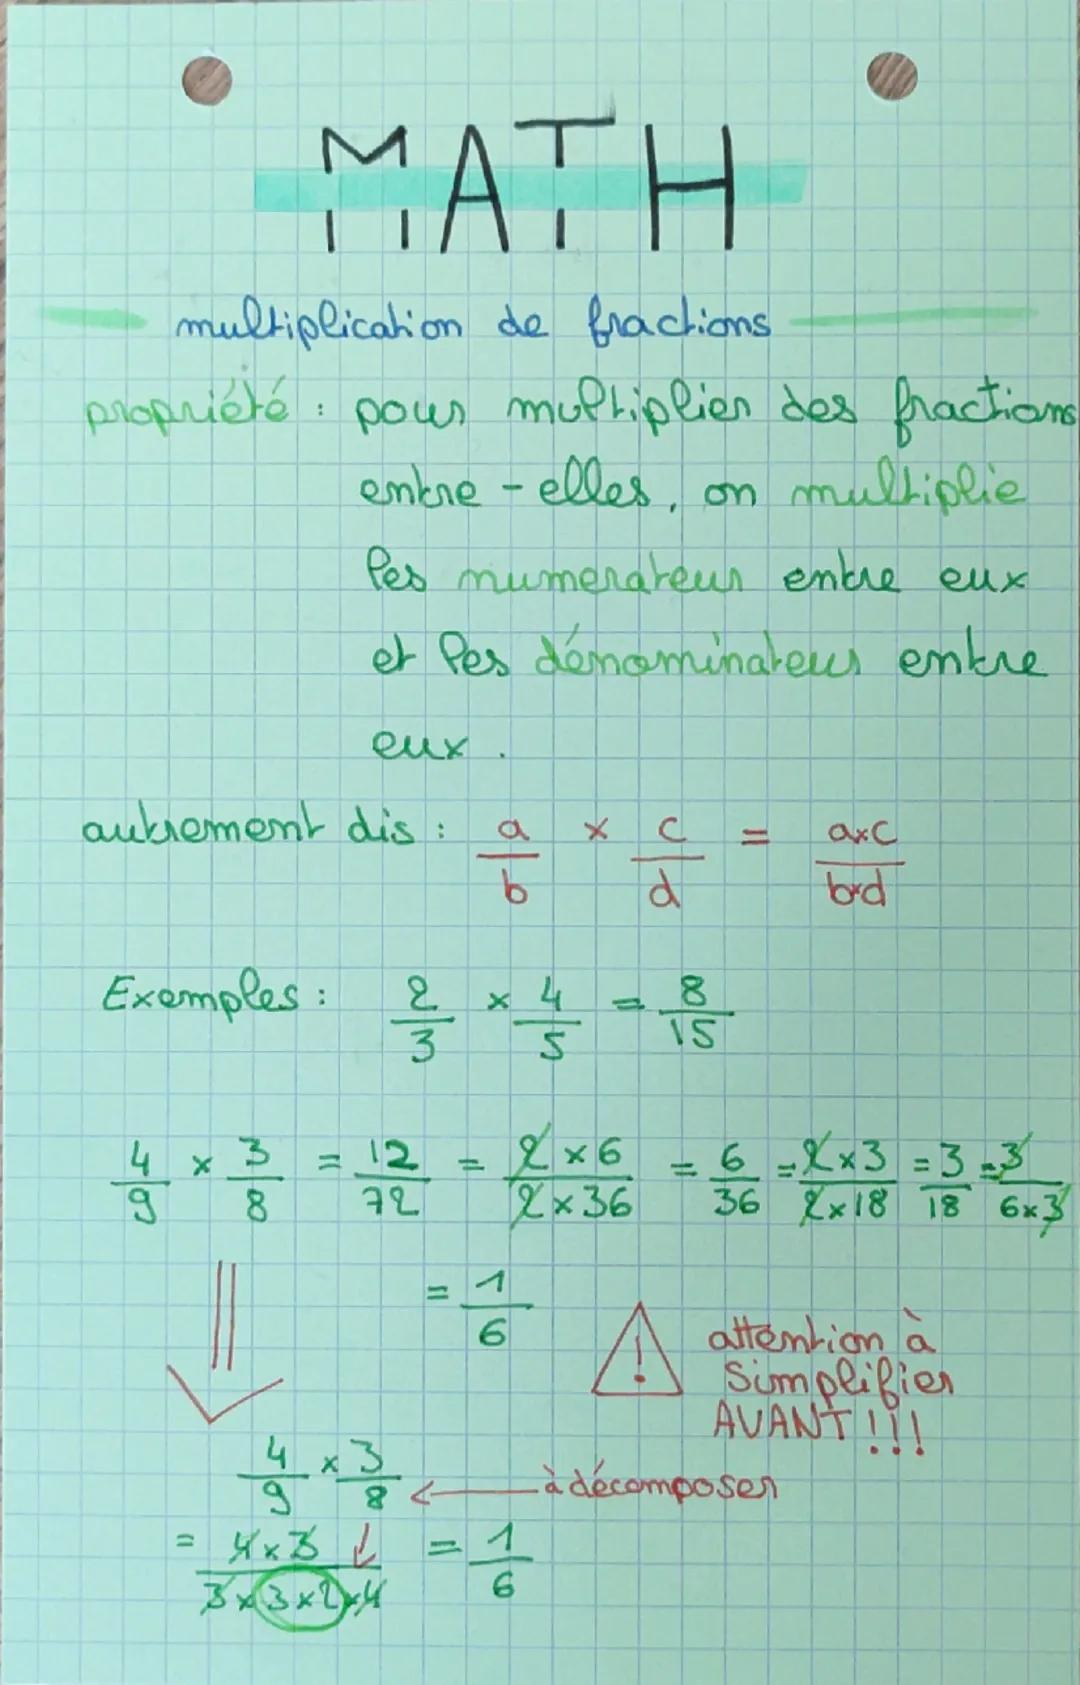 MATH
multiplication de fractions
propriété : pour multiplier des fractions
entre-elles, on multiplie
les numerateur entre eux
et les dénominateur entre
eux.
autrement dis : a/b × c/d = a×c/b×d
Exemples : 2/3 × 4/5 = 8/15
4/9 × 3/8 = 12/72 = 2×6/2×36 = 6/36 = 2×3/2×18 = 3/18 = 3/6×3
= 1/6
attention à
simplifier
AVANT !!!
4/9 × 3/8 ← à décomposer
= 4×3/3×3×2×4 = 1/6